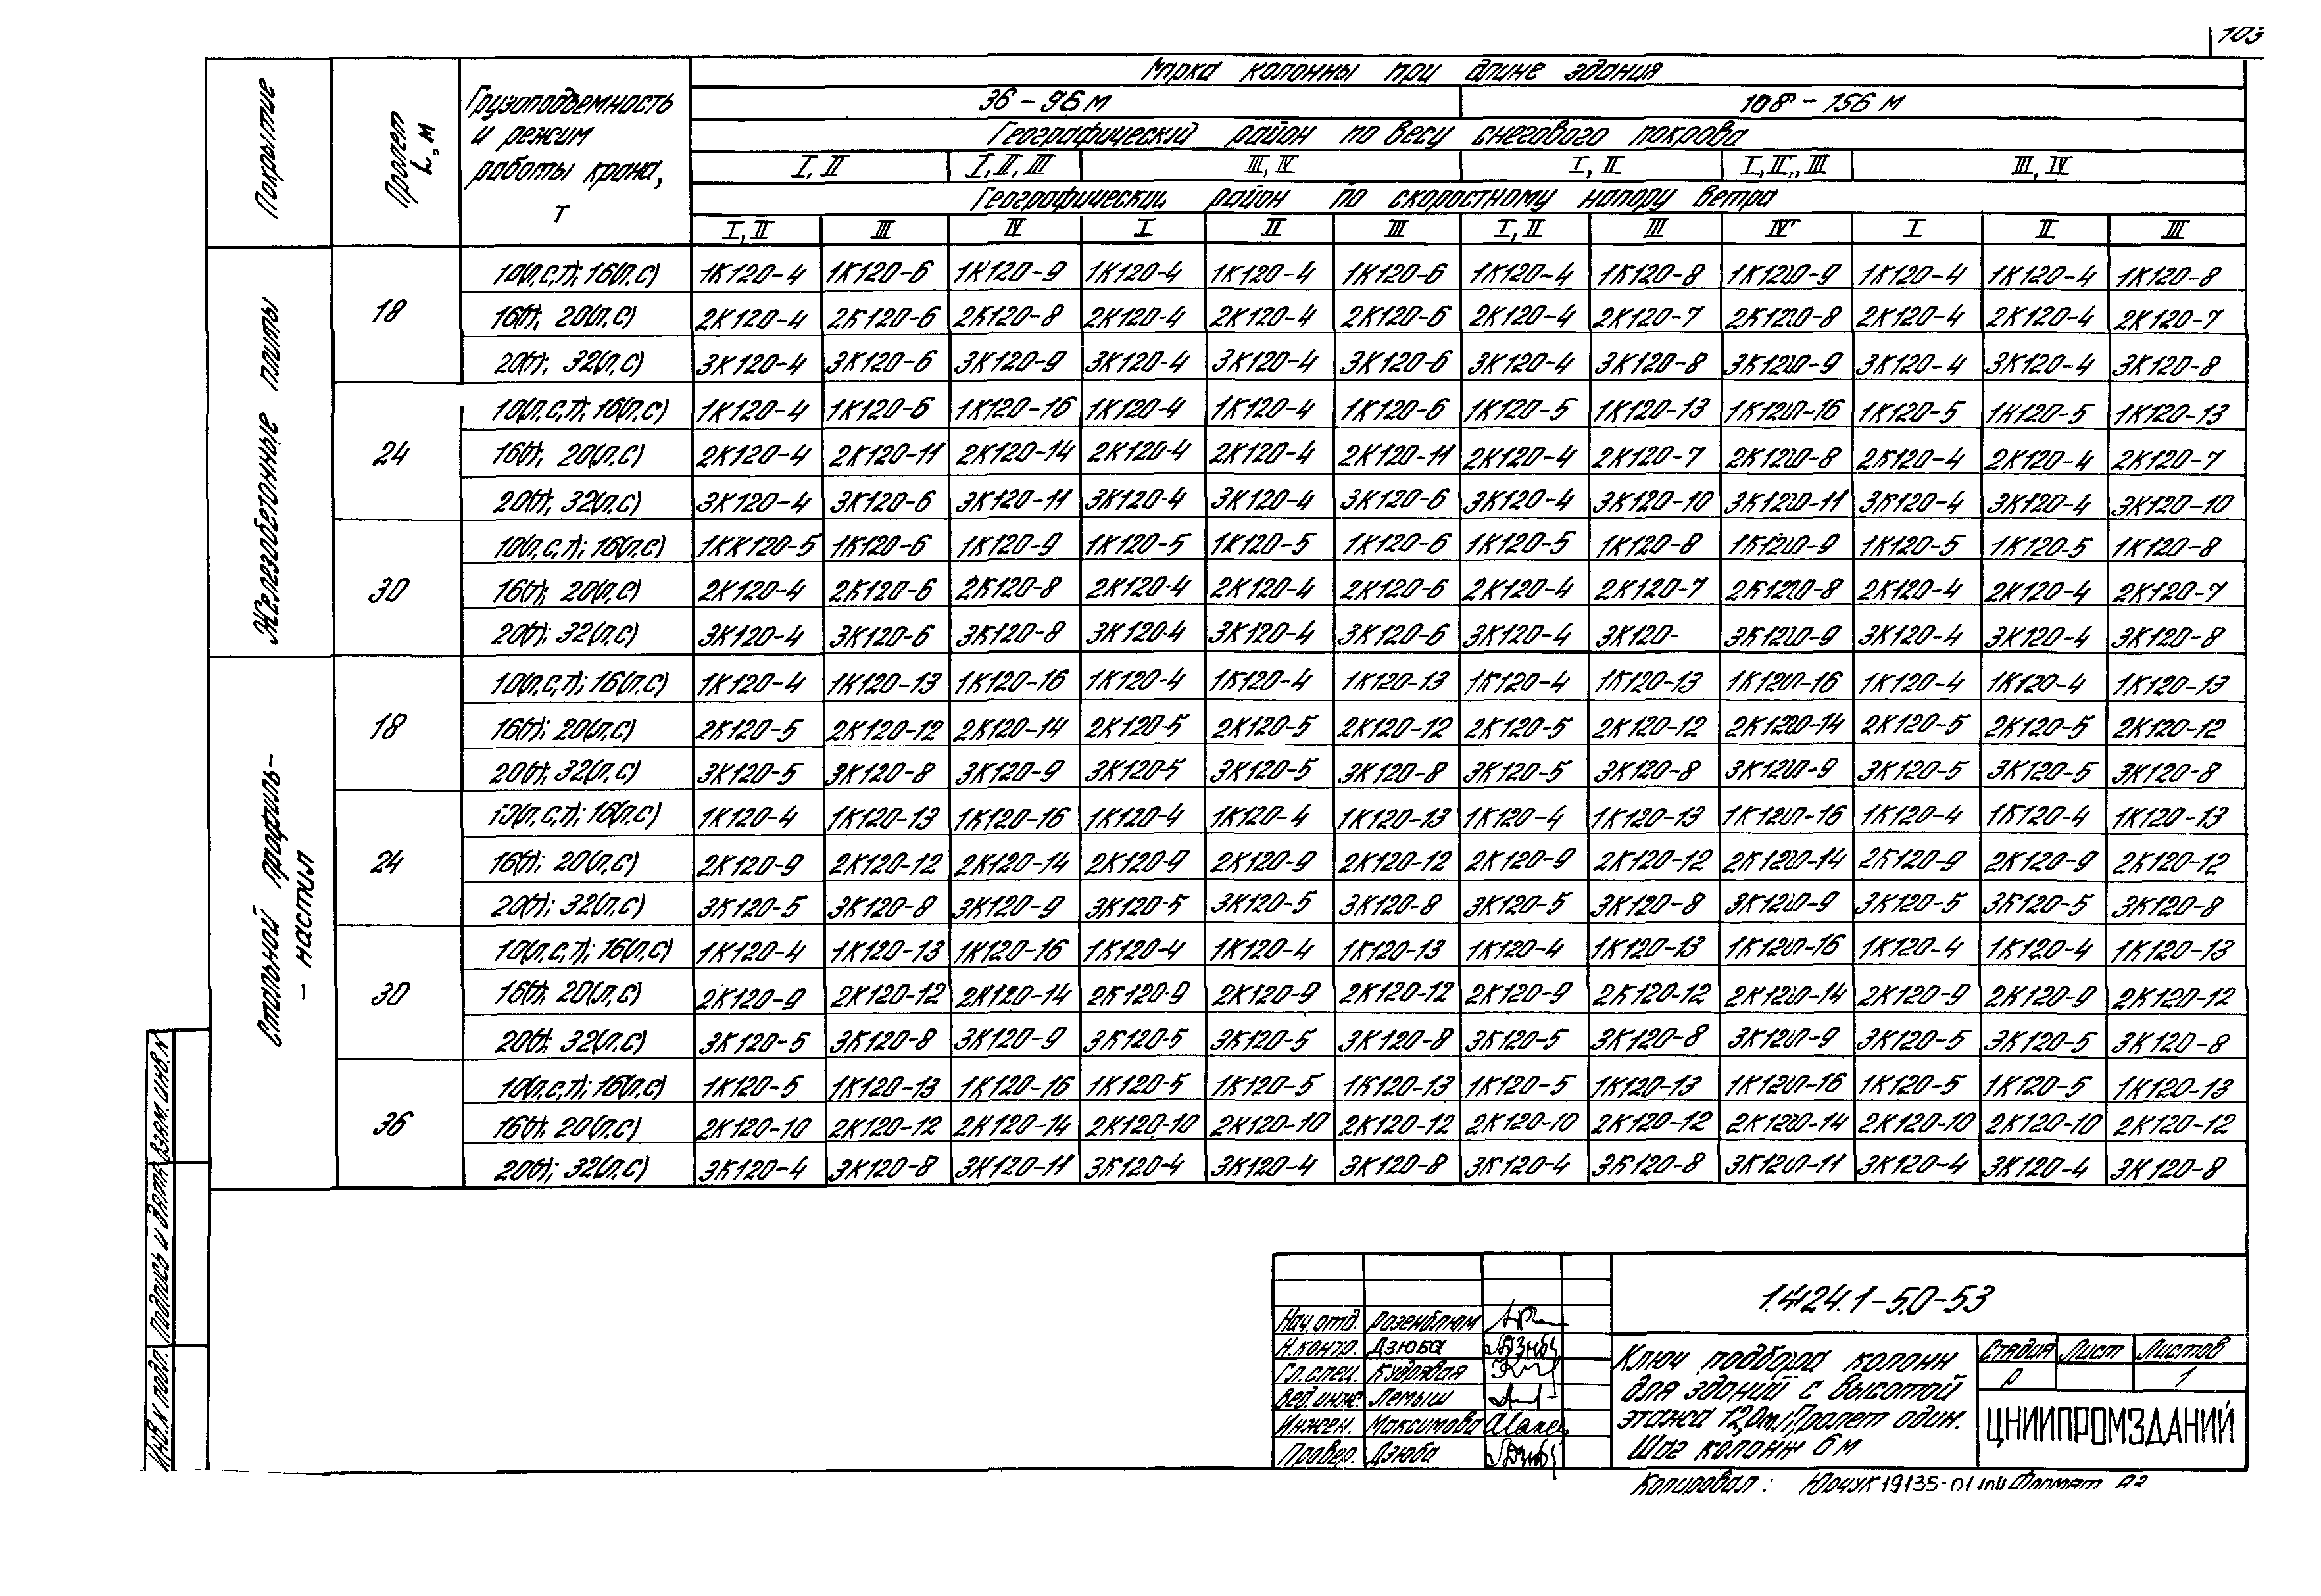 103
Марка колонны при длине здания
Покрытие
Пролет L, м
Грузоподъемность
и режим
работы крана,
т
36-96 м 108-156 м
Географический район по весу снегового покрова
I, II I, II, III III, IV I, II I, II, III III, IV
Географический район по скоростному напору ветра
I, II III IV I II III I, II III IV I II III
Железобетонные плиты
18
10(л,с,т); 16(л,с) 1К120-4 1К120-6 1К120-9 1К120-4 1К120-4 1К120-6 1К120-4 1К120-8 1К120-9 1К120-4 1К120-4 1К120-8
16(т); 20(л,с) 2К120-4 2К120-6 2К120-8 2К120-4 2К120-4 2К120-6 2К120-4 2К120-7 2К120-8 2К120-4 2К120-4 2К120-7
20(т); 32(л,с) 3К120-4 3К120-6 3К120-9 3К120-4 3К120-4 3К120-6 3К120-4 3К120-8 3К120-9 3К120-4 3К120-4 3К120-8
24
10(л,с,т); 16(л,с) 1К120-4 1К120-6 1К120-16 1К120-4 1К120-4 1К120-6 1К120-5 1К120-13 1К120-16 1К120-5 1К120-5 1К120-13
16(т); 20(л,с) 2К120-4 2К120-11 2К120-14 2К120-4 2К120-4 2К120-11 2К120-4 2К120-7 2К120-8 2К120-4 2К120-4 2К120-7
20(т); 32(л,с) 3К120-4 3К120-6 3К120-11 3К120-4 3К120-4 3К120-6 3К120-4 3К120-10 3К120-11 3К120-4 3К120-4 3К120-10
30
10(л,с,т); 16(л,с) 1КК120-5 1К120-6 1К120-9 1К120-5 1К120-5 1К120-6 1К120-5 1К120-8 1К120-9 1К120-5 1К120-5 1К120-8
16(т); 20(л,с) 2К120-4 2К120-6 2К120-8 2К120-4 2К120-4 2К120-6 2К120-4 2К120-7 2К120-8 2К120-4 2К120-4 2К120-7
20(т); 32(л,с) 3К120-4 3К120-6 3К120-8 3К120-4 3К120-4 3К120-6 3К120-4 3К120- 3К120-9 3К120-4 3К120-4 3К120-8
Стальной профиль-
- настил
18
10(л,с,т); 16(л,с) 1К120-4 1К120-13 1К120-16 1К120-4 1К120-4 1К120-13 1К120-4 1К120-13 1К120-16 1К120-4 1К120-4 1К120-13
16(т); 20(л,с) 2К120-5 2К120-12 2К120-14 2К120-5 2К120-5 2К120-12 2К120-5 2К120-12 2К120-14 2К120-5 2К120-5 2К120-12
20(т); 32(л,с) 3К120-5 3К120-8 3К120-9 3К120-5 3К120-5 3К120-8 3К120-5 3К120-8 3К120-9 3К120-5 3К120-5 3К120-8
24
10(л,с,т); 16(л,с) 1К120-4 1К120-13 1К120-16 1К120-4 1К120-4 1К120-13 1К120-4 1К120-13 1К120-16 1К120-4 1К120-4 1К120-13
16(т); 20(л,с) 2К120-9 2К120-12 2К120-14 2К120-9 2К120-9 2К120-12 2К120-9 2К120-12 2К120-14 2К120-9 2К120-9 2К120-12
20(т); 32(л,с) 3К120-5 3К120-8 3К120-9 3К120-5 3К120-5 3К120-8 3К120-5 3К120-8 3К120-9 3К120-5 3К120-5 3К120-8
30
10(л,с,т); 16(л,с) 1К120-4 1К120-13 1К120-16 1К120-4 1К120-4 1К120-13 1К120-4 1К120-13 1К120-16 1К120-4 1К120-4 1К120-13
16(т); 20(л,с) 2К120-9 2К120-12 2К120-14 2К120-9 2К120-9 2К120-12 2К120-9 2К120-12 2К120-14 2К120-9 2К120-9 2К120-12
20(т); 32(л,с) 3К120-5 3К120-8 3К120-9 3К120-5 3К120-5 3К120-8 3К120-5 3К120-8 3К120-9 3К120-5 3К120-5 3К120-8
36
10(л,с,т); 16(л,с) 1К120-5 1К120-13 1К120-16 1К120-5 1К120-5 1К120-13 1К120-5 1К120-13 1К120-16 1К120-5 1К120-5 1К120-13
16(т); 20(л,с) 2К120-10 2К120-12 2К120-14 2К120-10 2К120-10 2К120-12 2К120-10 2К120-12 2К120-14 2К120-10 2К120-10 2К120-12
20(т); 32(л,с) 3К120-4 3К120-8 3К120-11 3К120-4 3К120-4 3К120-8 3К120-4 3К120-8 3К120-11 3К120-4 3К120-4 3К120-8
Взам. инв. N
Подпись и дата
Инв. N подл.
1.424.1-5.0-53
Нач. отд. Розенблюм
Н. контр. Дзюба
Гл. спец. Кудрявая
Вед. инж. Лемыш
Инжен. Максимова
Провер. Дзюба
Ключ подбора колонн
для зданий с высотой
этажа 12,0м; Пролет один.
Шаг колонн 6 м
Стадия Лист Листов
Р 1
ЦНИИПРОМЗДАНИЙ
Копировал: Юрчук 19135-01 104 Формат А3